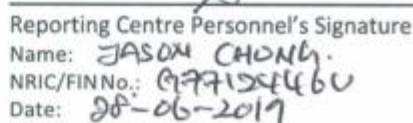 Reporting Centre Personnel's Signature
Name: JASON CHONG.
NRIC/FIN No.: G7712446U
Date: 28-06-2019